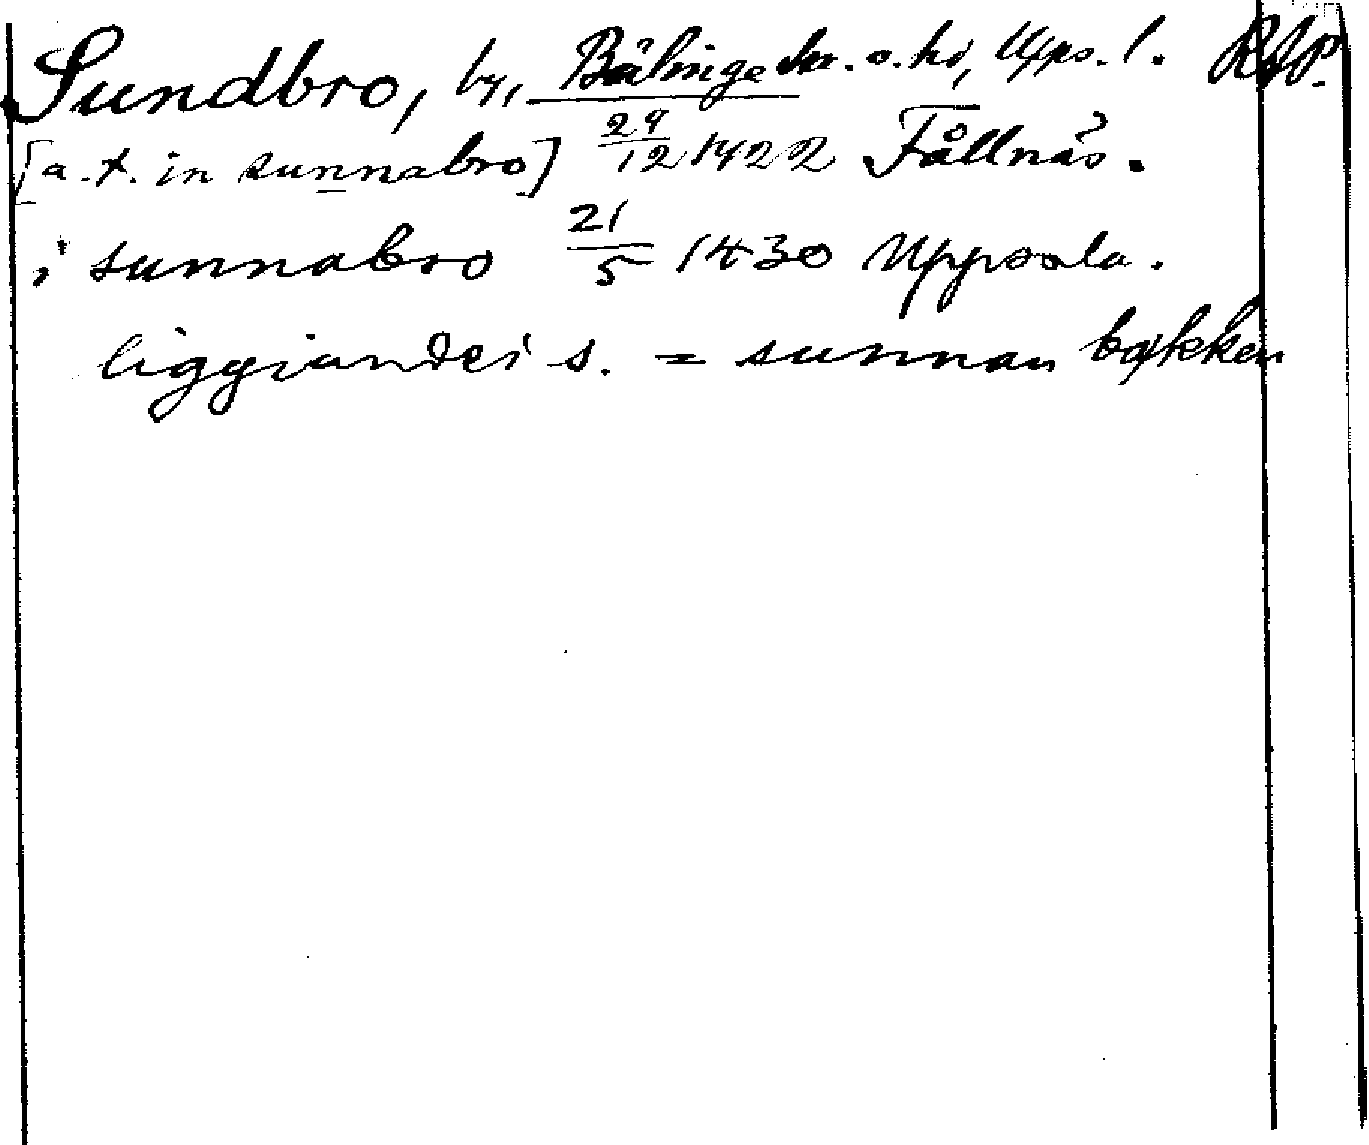 Sundbro, by, Bälinge sn. o. hd, Upps. l. RAP.
[a. t. in sunnabro] 29/12 1422 Fållnäs.
i sunnabro 21/5 1430 Uppsala.
liggiandes i s. = sunnan bækken